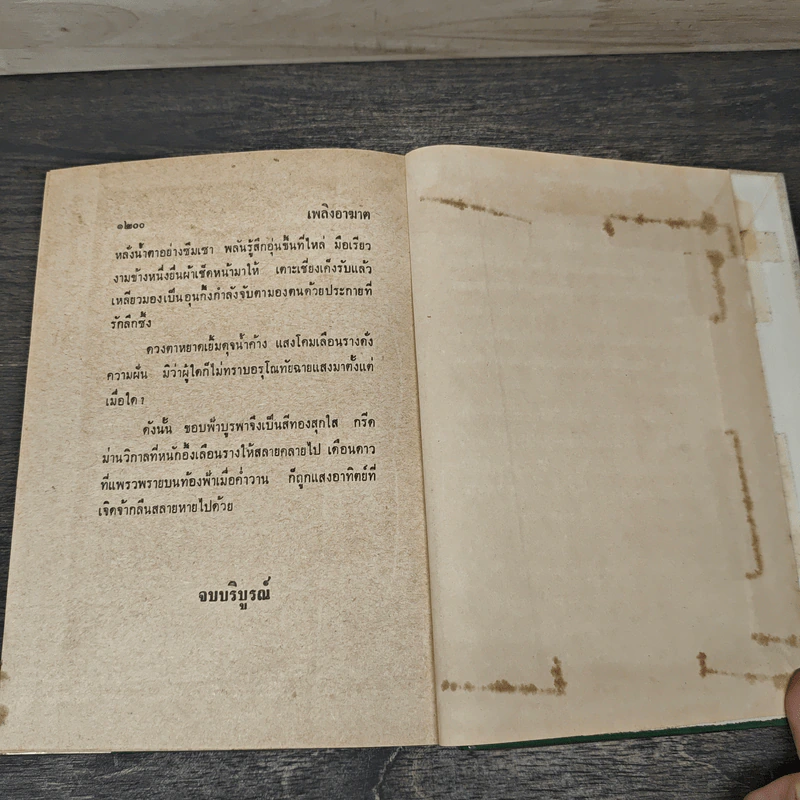 ๑๒๐๐ เพลิงอาฆาต
หลั่งน้ำตาอย่างซึมเซา พลันรู้สึกอุ่นขึ้นที่ไหล่ มือเรียว
งามข้างหนึ่งยื่นผ้าเช็ดหน้ามาให้ เตาะเชี่ยงเค็งรับแล้ว
เหลียวมองเบ็นฮุนกังกำลังจับตามองตนด้วยประกายที่
รักลึกซึ้ง
ดวงตาหยาดเยิ้มดุจน้ำค้าง แสงโคมเลือนรางดั่ง
ความฝัน มิว่าผู้ใดก็ไม่ทราบอรุโณทัยฉายแสงมาตั้งแต่
เมื่อใด ?
ดังนั้น ขอบฟ้าบูรพาจึงเป็นสีทองสุกใส กรีด
ม่านวิกาลที่หนักอึ้งเลือนรางให้สลายคลายไป เดือนดาว
ที่แพรวพรายบนท้องฟ้าเมื่อค่ำวาน ก็ถูกแสงอาทิตย์ที่
เจิดจ้ากลืนสลายหายไปด้วย
จบบริบูรณ์